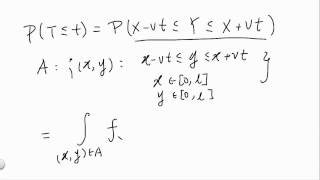 P(T≤t) = P(X-vt ≤ Y ≤ X+vt)
A: {(x,y): x-vt ≤ y ≤ x+vt}
x∈[0,l]
y∈[0,l]
= ∫ f
(x,y)∈A